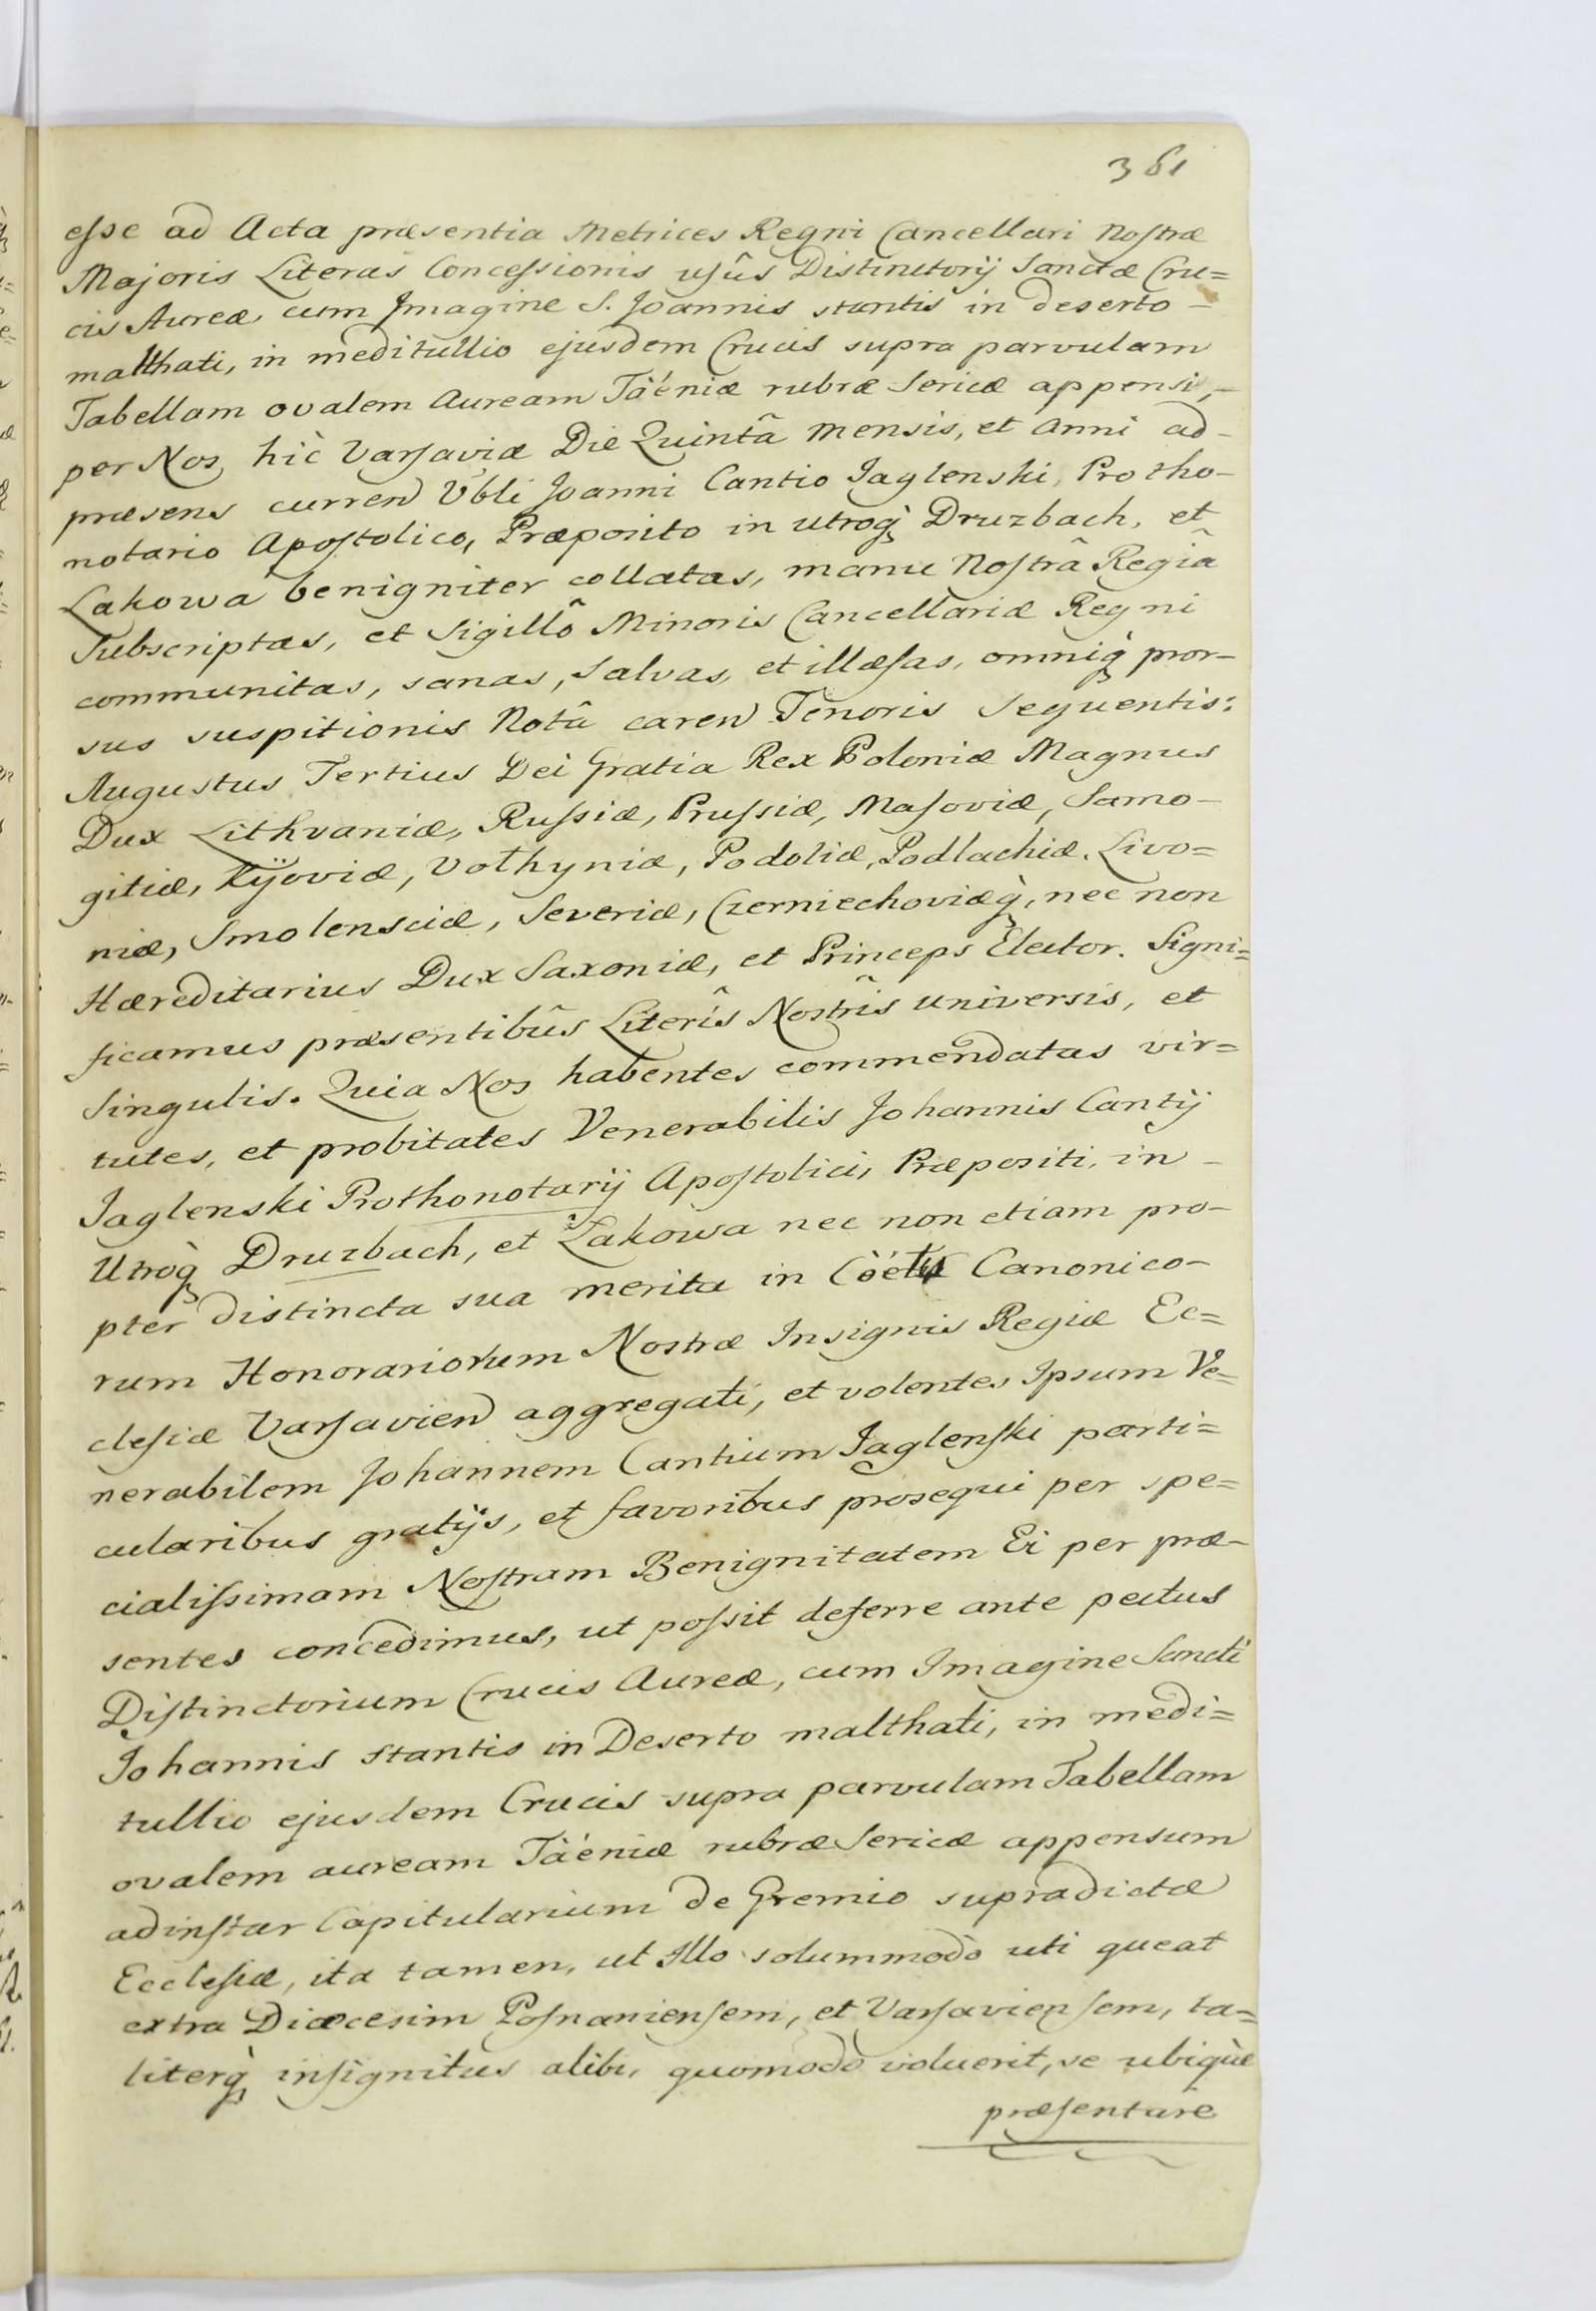 361
eſse ad Acta præsentia Metrices Regni Cancellari Noſtræ
Majoris Literas Conceſsionis uſûs Distinctorij Sanctæ Cru=
cis Aureæ, cum Imagine S. Joannis stantis in deserto -
malthati, in meditullio ejusdem Crucis supra parvulam
Tabellam ovalem Auream Täéniæ rubræ Sericæ appensi, -
per Nos, hìc Varſaviæ Die Quintâ mensis, et Anni ad-
præsens curren Vbli Joanni Cantio Jaglenski, Protho-
notario Apoſtolico, Præposito in utroq̀ Druzbach, et
Lakowa benigniter collatas, manu Noſtrâ Regiâ
Subscriptas, et Sigillô Minoris Cancellariæ Regni
communitas, sanas, Salvas, et illæſas, omniq̀ pror-
sus suspitionis Notâ caren Tenoris Sequentis:
Augustus Tertius Dei Gratia Rex Poloniæ Magnus
Dux Lithvaniæ, Ruſsiæ, Pruſsiæ, Maſoviæ, Samo-
gitiæ, Kijoviæ, Volhyniæ, Podoliæ, Podlachiæ, Livo=
niæ, Smolensciæ, Severiæ, Czerniechoviæq̀, nec non
Hæreditarius Dux Saxoniæ, et Princeps Elector. Signi=
ficamus præsentibûs Literîs Nostrîs universis, et
Singulis. Quia Nos habentes commendatas vir=
tutes, et probitates Venerabilis Johannis Cantij
Jaglenski Prothonotarij Apoſtolici, Præpositi, in -
Utroq̀ Druzbach, et Lakowa nec non etiam pro-
pter distincta sua merita in Cöétu Canonico-
rum Honorariorum Nostræ Insignis Regiæ Ec=
cleſiæ Varſavien aggregati, et volentes Ipsum Ve=
nerabilem Johannem Cantium Jaglenſki parti=
cularibus gratijs, et favoribus prosequi per spe=
cialiſsimam Noſtram Benignitatem Ei per præ-
sentes concedimus, ut poſsit deferre ante pectus
Diſtinctorium Crucis Aureæ, cum Imagine Sancti
Johannis Stantis in Deserto malthati, in medi=
tullio ejusdem Crucis supra parvulam Tabellam
ovalem auream Täéniæ rubræ Sericæ appensum
adinſtar Capitularium de Gremio supradictæ
Eccleſiæ, ita tamen, ut Illo solummodò uti queat
extra Diæcesim Poſnanienſem, et Varſavienſem, ta=
literq̀ inſignitus alibi, quomodò voluerit, se ubiq̀ue
præſentare